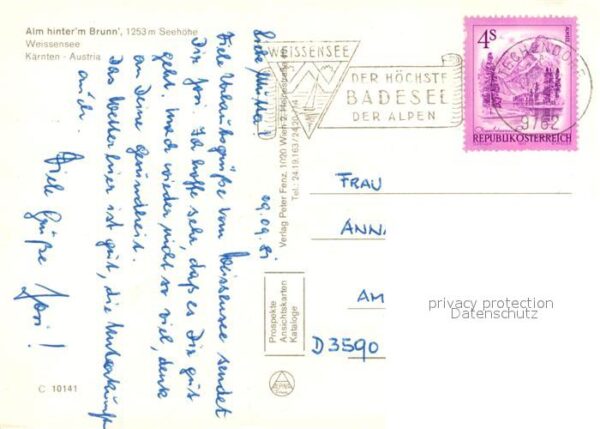 Alm hinter'm Brunn', 1253 m Seehöhe
Weissensee
Kärnten - Austria
09.09.81
Liebe Mutter!
Viele Urlaubsgrüße vom Weissensee sendet
Dir Jori. Ich hoffe sehr, daß es Dir gut
geht. Mach wieder nicht so viel, denk
an Deine Gesundheit.
Das Wetter hier ist gut, die Unterkunft
auch.
Viele Grüße
Jori!
C 10141
Verlag Peter Fenz, 1020 Wien 2,
Tel.: 24 19 163/
Prospekte
Ansichtskarten
Kataloge
WEISSENSEE
DER HÖCHSTE
BADESEE
DER ALPEN
TECHENDORF
9762
4S
REPUBLIK ÖSTERREICH
FRAU
ANN
AM
D 3590
privacy protection
Datenschutz